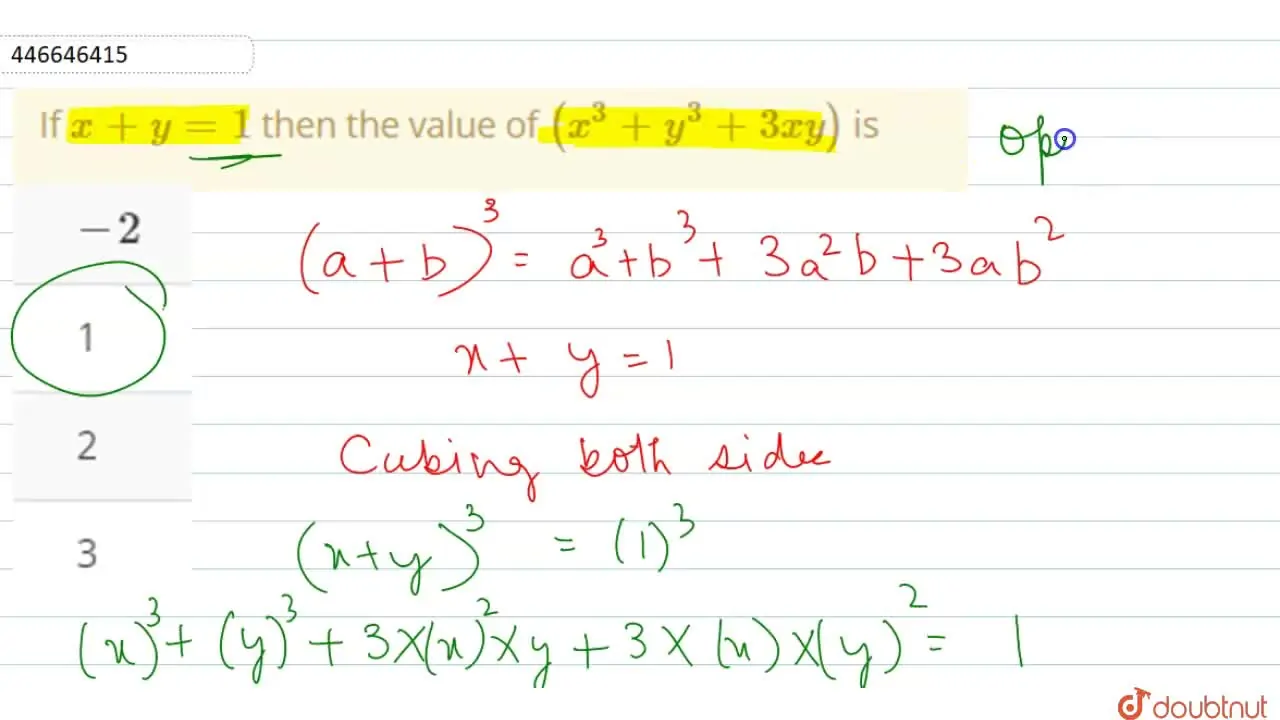 446646415
If x + y = 1 then the value of (x³ + y³ + 3xy) is
op
−2
(a + b)³ = a³ + b³ + 3a²b + 3ab²
1
x + y = 1
2
Cubing both sides
3
(x + y)³ = (1)³
(x)³ + (y)³ + 3×(x)²×y + 3×(x)×(y)² = 1
doubtnut